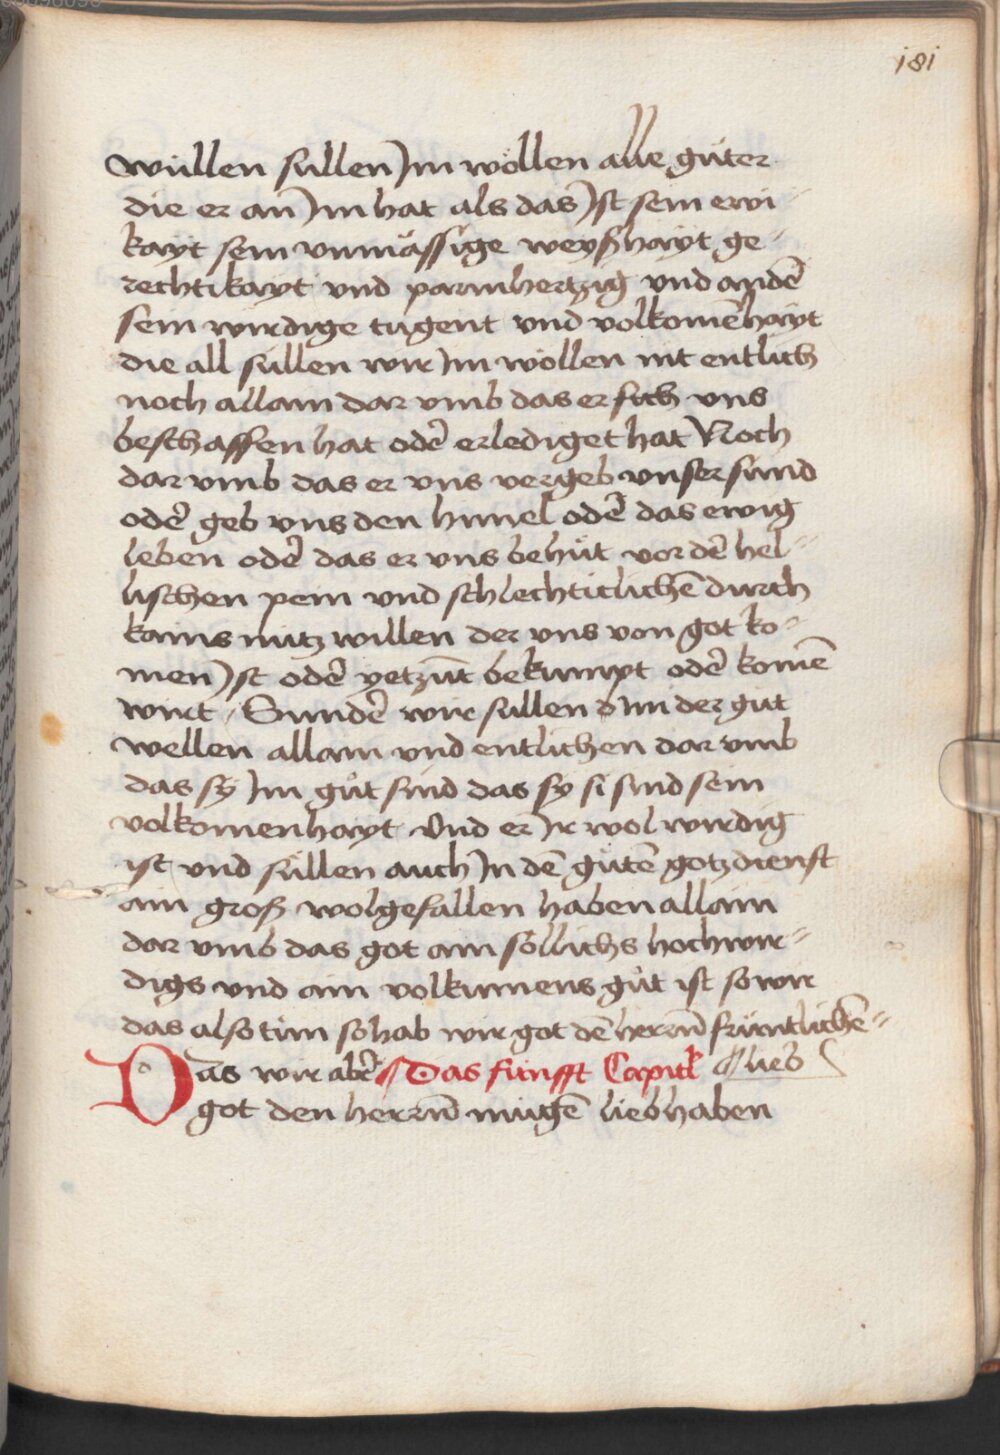 181
wüllen süllen Im wöllen alle güter
die er an Im hat als das Ist sein ewi
kayt sein vnmässige weyßhayt ge-
rechtikayt vnd parmhertzig vnd andē
sein wirdige tugent vnd volkomēhayt
die all süllen wir Im wöllen nit entlich
noch allain dar vmb das er sich vns
beschaffen hat odē erlediget hat Noch
dar vmb das er vns vergeb vnser sünd
odē geb vns den himel odē das ewig
leben odē das er vns behüt vor dē hel-
lischen pein vnd schlechticlichē durch
kains nütz willen der vns von got ko-
men Ist odē yetzūt bekumpt odē komē
wirt Sundē wir sullen Im der güt
wellen allain vnd entlichen dar vmb
das sy Im gůt sind das sy si sind sein
volkomenhayt Vnd er Ir wol wirdig
ist vnd süllen auch In dē gütē gotzdienst
ain groß wolgefallen haben allain
dar vmb das got ain söllichs hochwir-
digs vnd ain volkumens gůt ist so wir
das also tün so hab wir got dē herrn̄ früntlichē-
Das wir abē Das fünfft Capitl lieb
got den herrn̄ mügē lieb haben